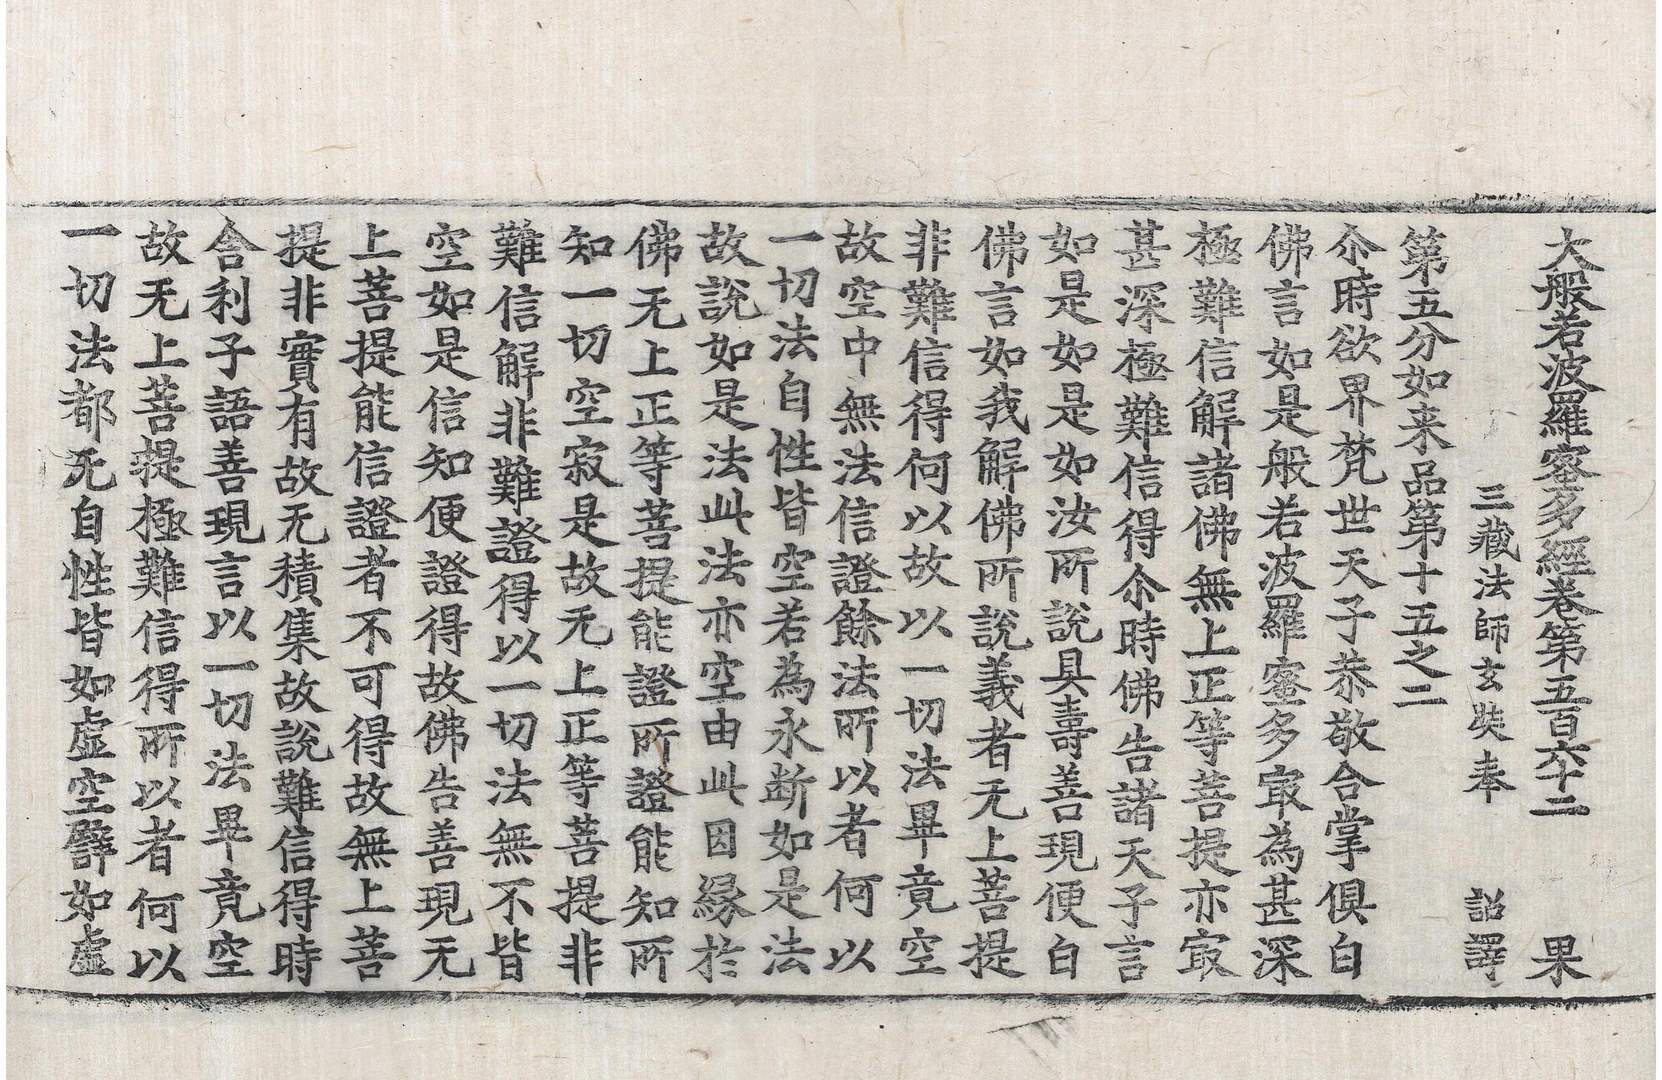 大般若波羅蜜多經卷第五百六十二 果
三藏法師玄奘奉 詔譯
第五分如来品第十五之二
尒時欲界梵世天子恭敬合掌俱白
佛言如是般若波羅蜜多㝡為甚深
極難信解諸佛無上正等菩提亦㝡
甚深極難信得尒時佛告諸天子言
如是如是如汝所說具壽善現便白
佛言如我解佛所說義者无上菩提
非難信得何以故以一切法畢竟空
故空中無法信證餘法所以者何以
一切法自性皆空若為永断如是法
故說如是法此法亦空由此因緣於
佛无上正等菩提能證所證能知所
知一切空寂是故无上正等菩提非
難信解非難證得以一切法無不皆
空如是信知便證得故佛告善現无
上菩提能信證者不可得故無上菩
提非實有故无積集故說難信得時
舍利子語善現言以一切法畢竟空
故无上菩提極難信得所以者何以
一切法都无自性皆如虛空譬如虛